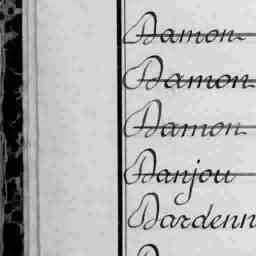 Damon
Damon
Damon
Danjou
Dardenn